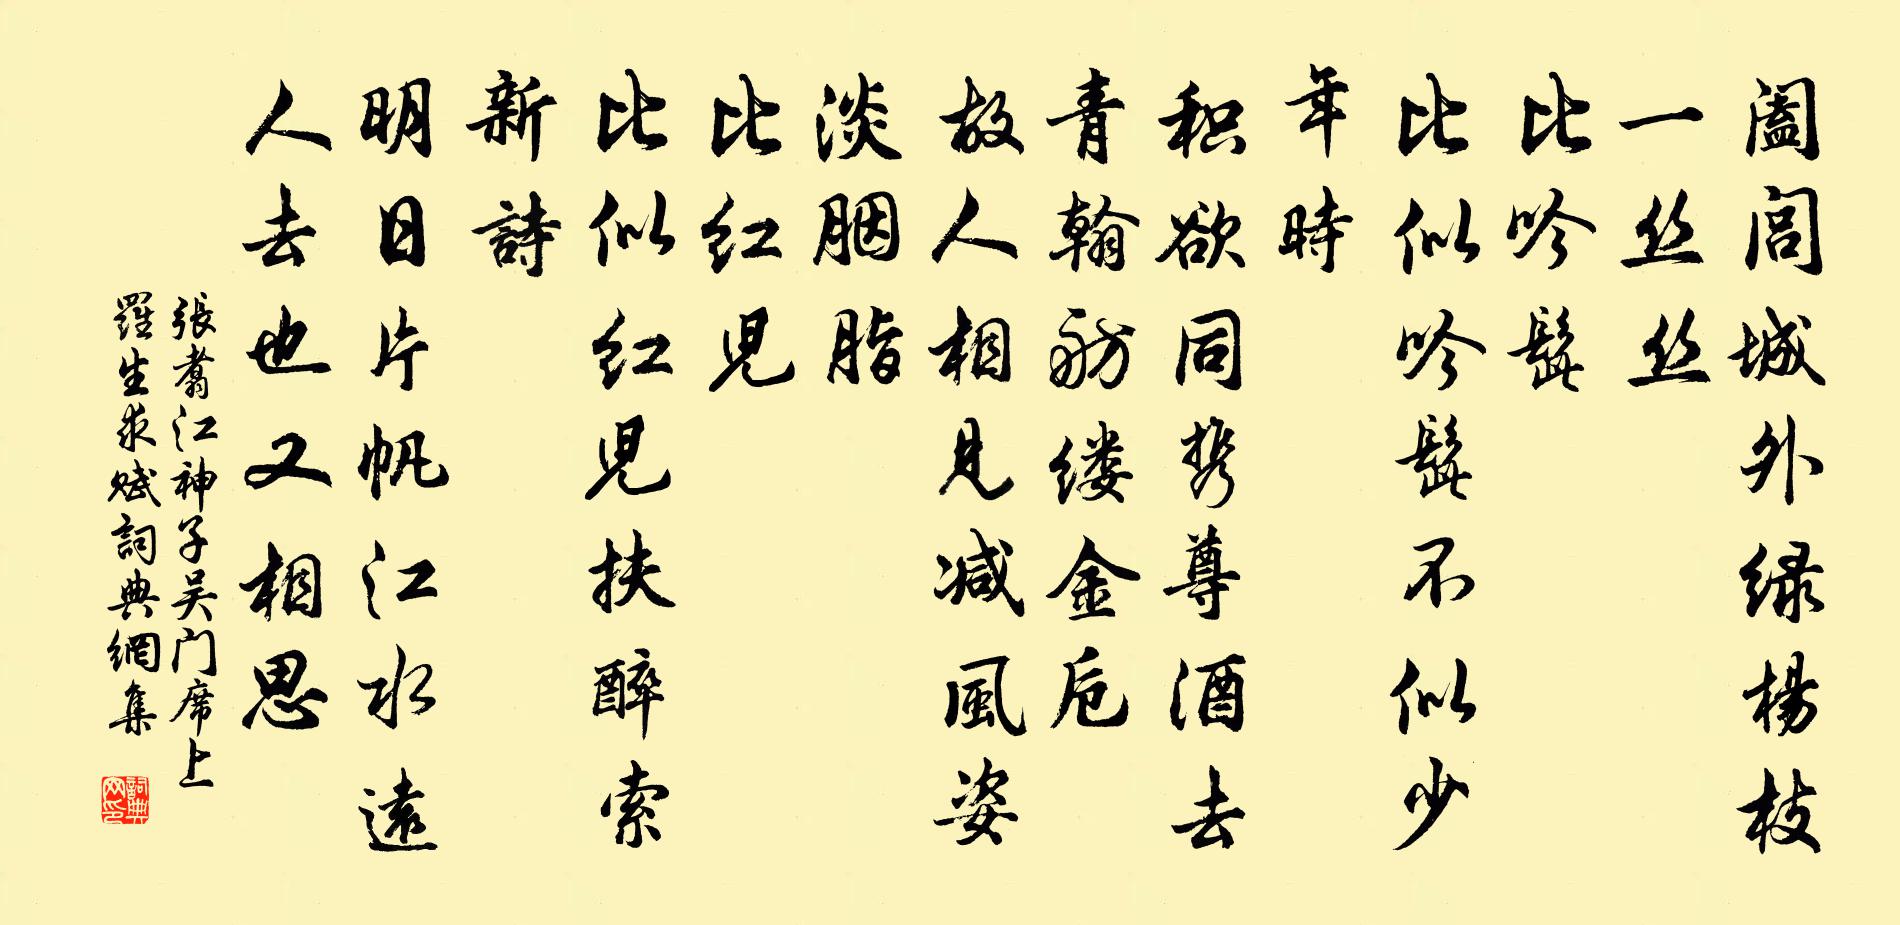 阖闾城外绿楊枝
一丝丝
比吟髭
比似吟髭不似少
年時
积欲同携尊酒去
青翰舫缕金卮
故人相見减風姿
淡胭脂
比红児
比似红児扶醉索
新詩
明日片帆江水遠
人去也又相思
張翥江神子吴门席上
羅生求赋詞典網集
詞典
网印